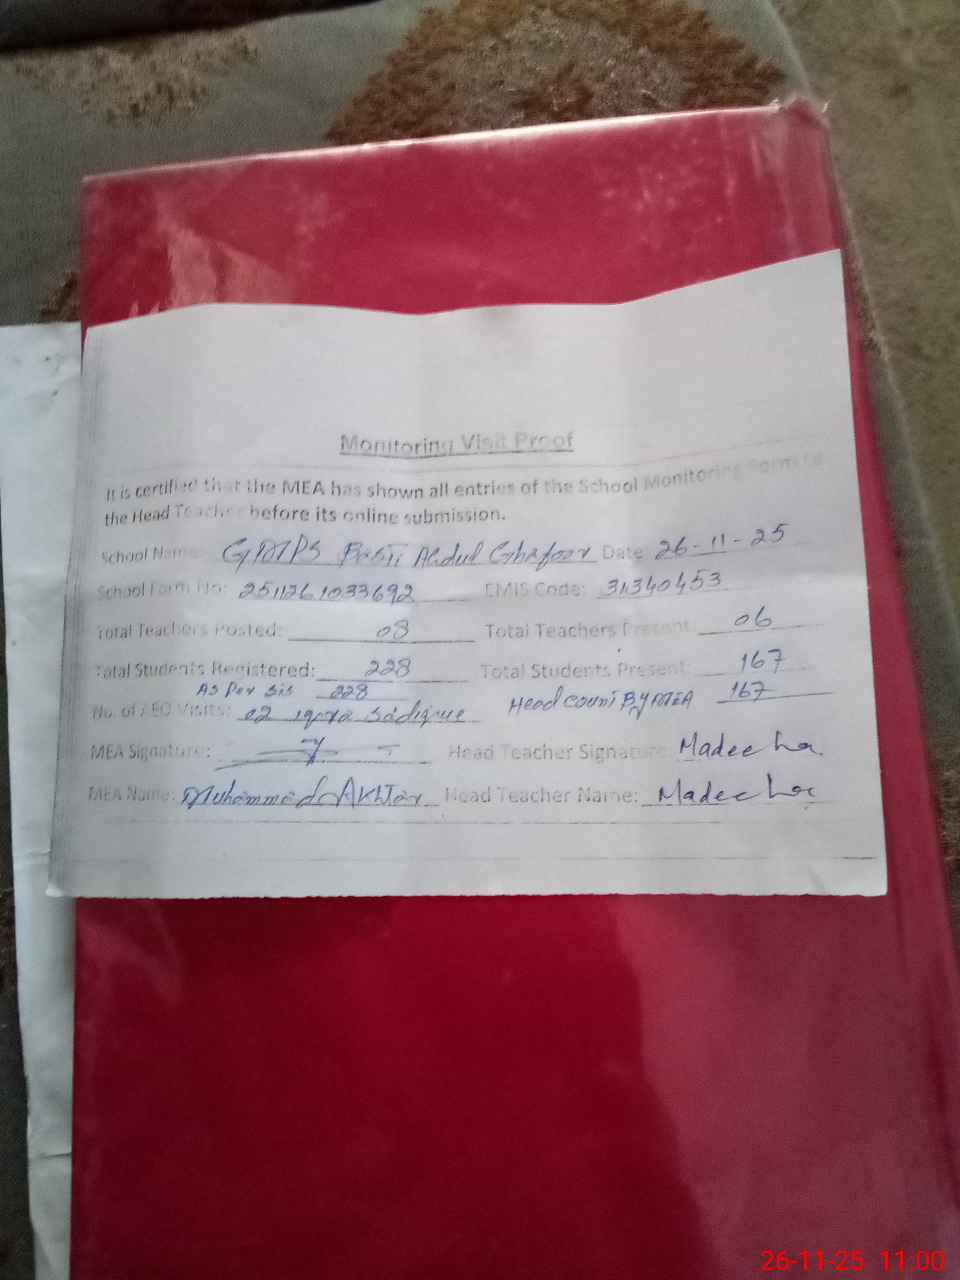 Monitoring Visit Proof
It is certified that the MEA has shown all entries of the School Monitoring Form to
the Head Teacher before its online submission.
School Name: GMPS Basti Abdul Ghafoor Date: 26-11-25
School Form No: 2511261033692 EMIS Code: 31340453
Total Teachers Posted: 08 Total Teachers Present: 06
Total Students Registered: 228 Total Students Present: 167
As Per Sis 228 Head Count By MEA 167
No. of AEO Visits: 02 iqra Sadique
MEA Signature: Head Teacher Signature: Madeeha
MEA Name: Muhammad Akhtar Head Teacher Name: Madeeha
26-11-25 11:00